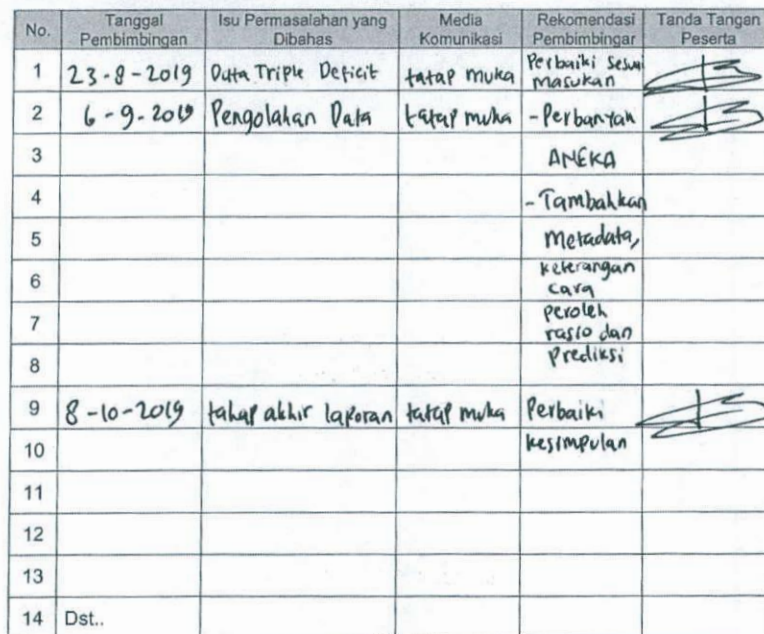 No. Tanggal Pembimbingan Isu Permasalahan yang Dibahas Media Komunikasi Rekomendasi Pembimbingar Tanda Tangan Peserta
1 23-8-2019 Data Triple Deficit tatap muka Perbaiki sesuai masukan
2 6-9-2019 Pengolahan Data tatap muka - Perbanyak
3 ANEKA
4 - Tambahkan
5 metadata,
6 keterangan cara
7 peroleh rasio dan
8 prediksi
9 8-10-2019 tahap akhir laporan tatap muka Perbaiki
10 kesimpulan
11
12
13
14 Dst..